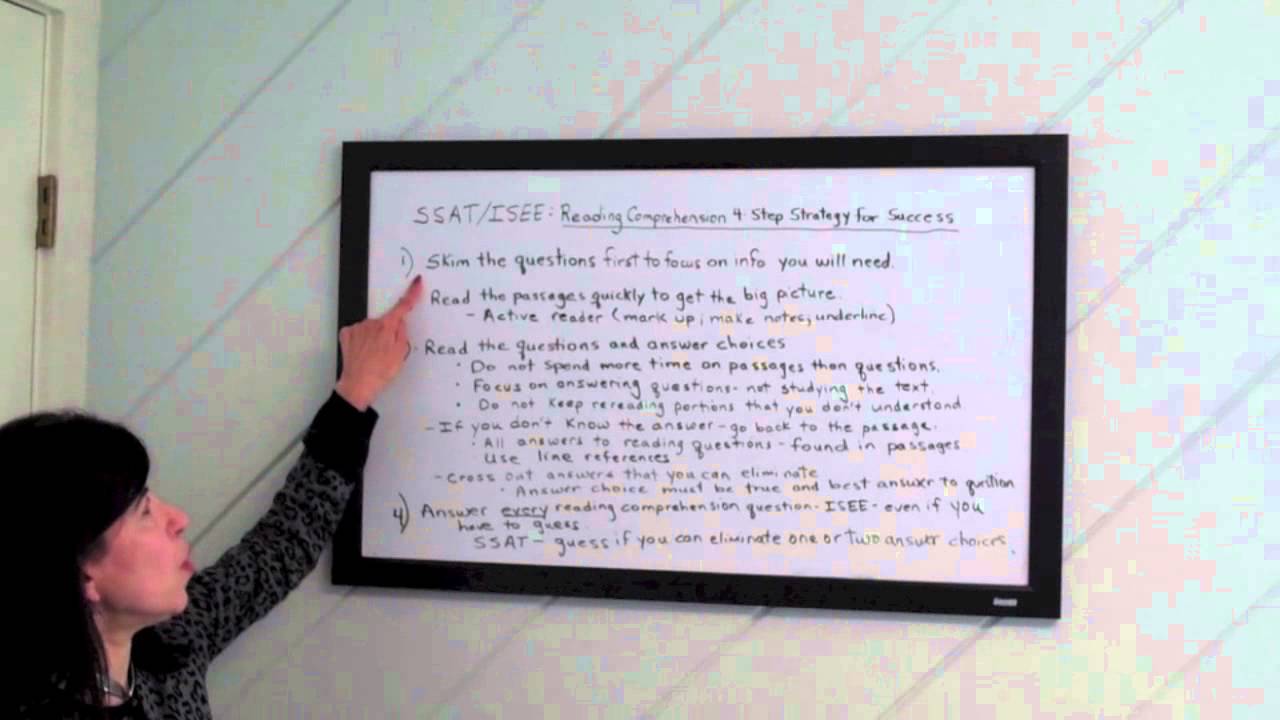 SSAT/ISEE: Reading Comprehension 4 Step Strategy for Success
1) Skim the questions first to focus on info you will need.
Read the passages quickly to get the big picture.
- Active reader (mark up; make notes; underline)
) Read the questions and answer choices
• Do not spend more time on passages than questions.
• Focus on answering questions - not studying the text.
• Do not keep rereading portions that you don't understand
- If you don't know the answer - go back to the passage.
• All answers to reading questions - found in passages
Use line references
- Cross out answers that you can eliminate
• Answer choice must be true and best answer to question
4) Answer every reading comprehension question - ISEE - even if you
have to guess.
SSAT - guess if you can eliminate one or two answer choices.